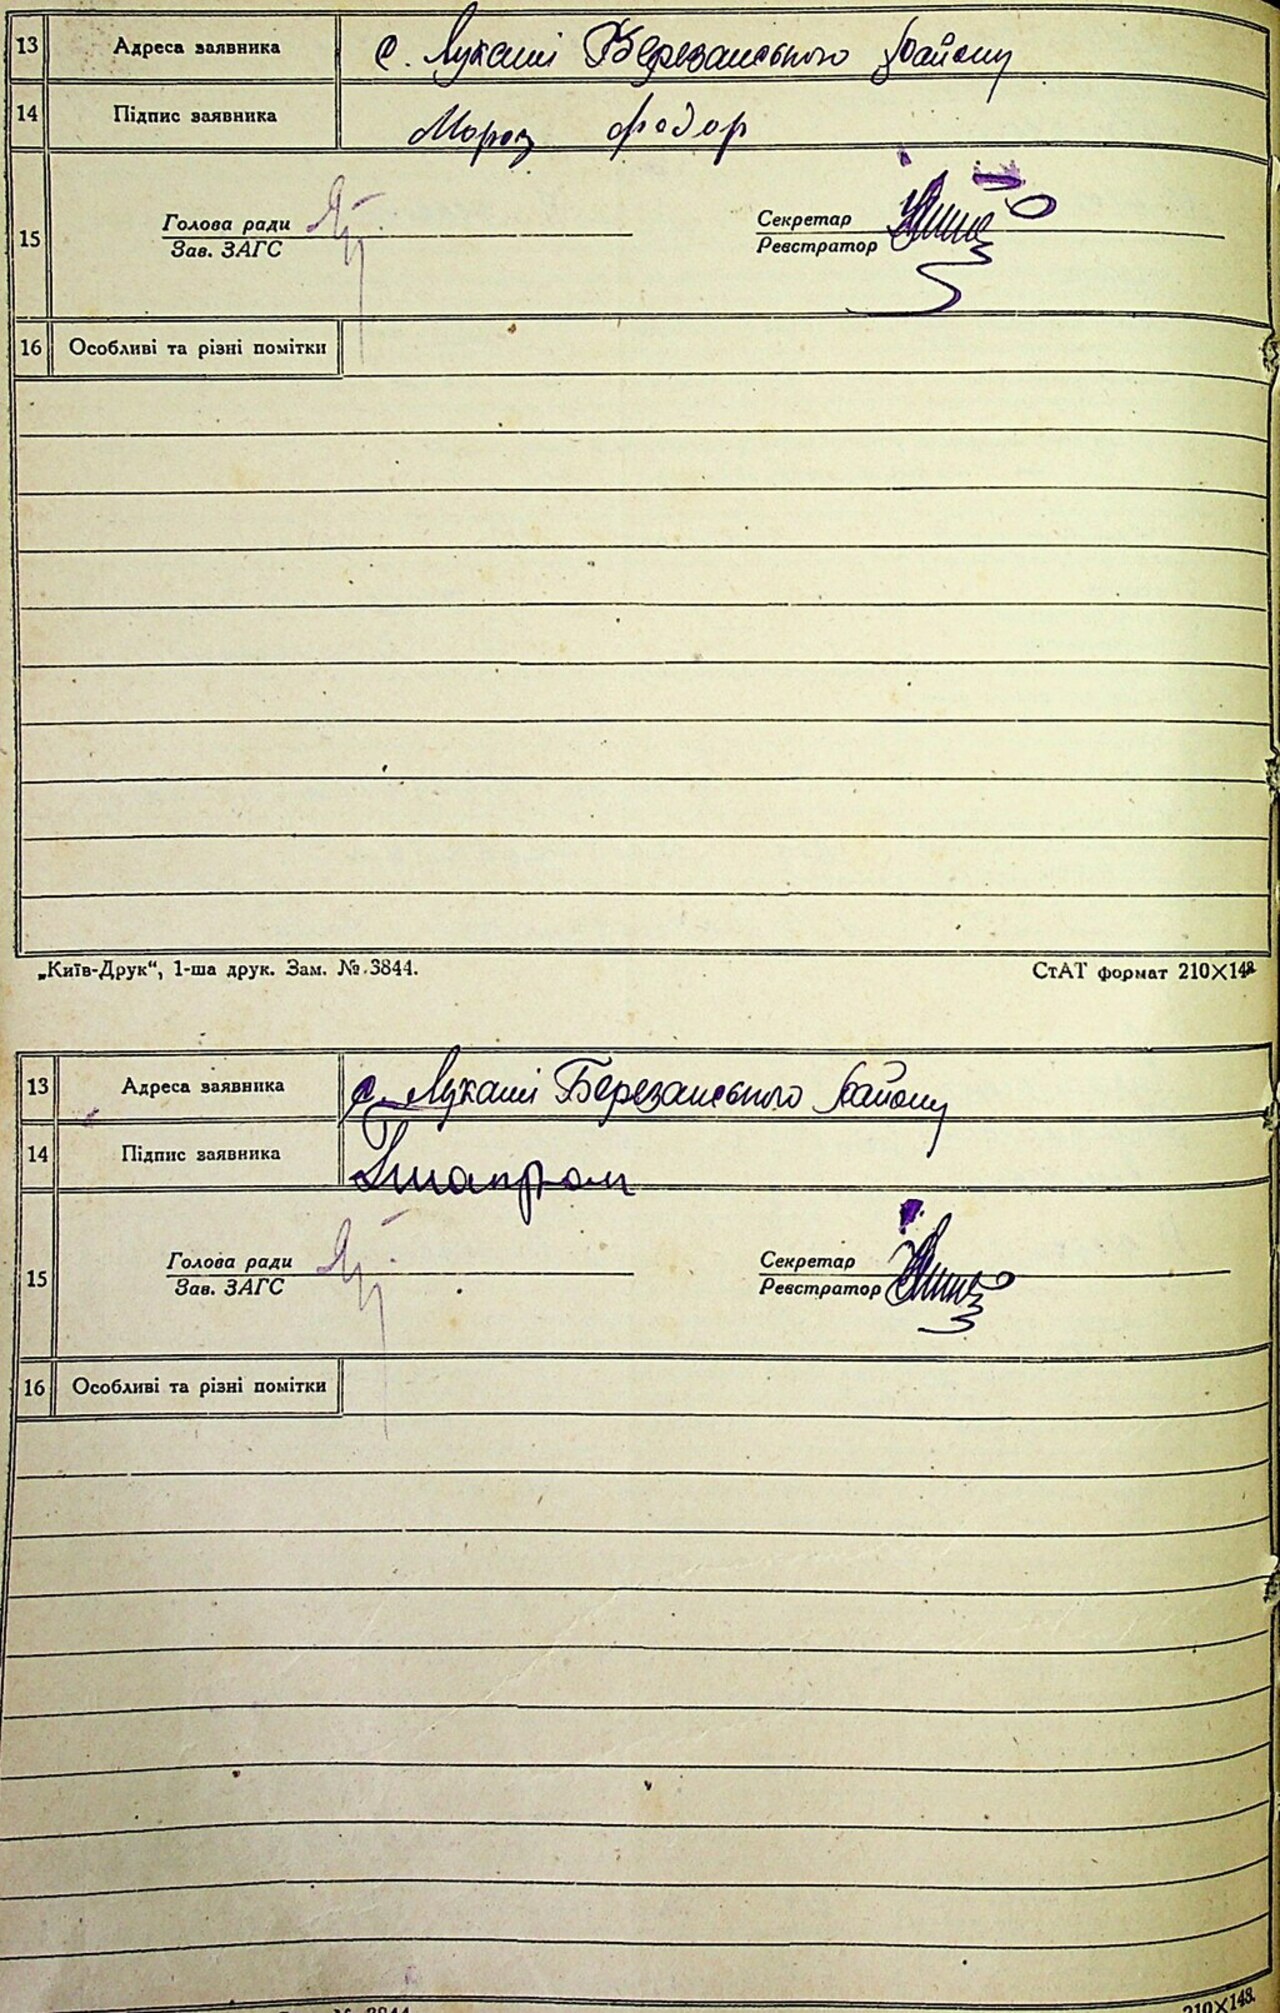 13 Адреса заявника с. Лукаші Березанського Району
14 Підпис заявника Мороз Федор
15 Голова ради Секретар
Зав. ЗАГС Реєстратор
16 Особливі та різні помітки
„Київ-Друк“, 1-ша друк. Зам. № 3844. СтАТ формат 210×148
13 Адреса заявника с. Лукаші Березанського Району
14 Підпис заявника
15 Голова ради Секретар
Зав. ЗАГС Реєстратор
16 Особливі та різні помітки
№ 3844 210×148.